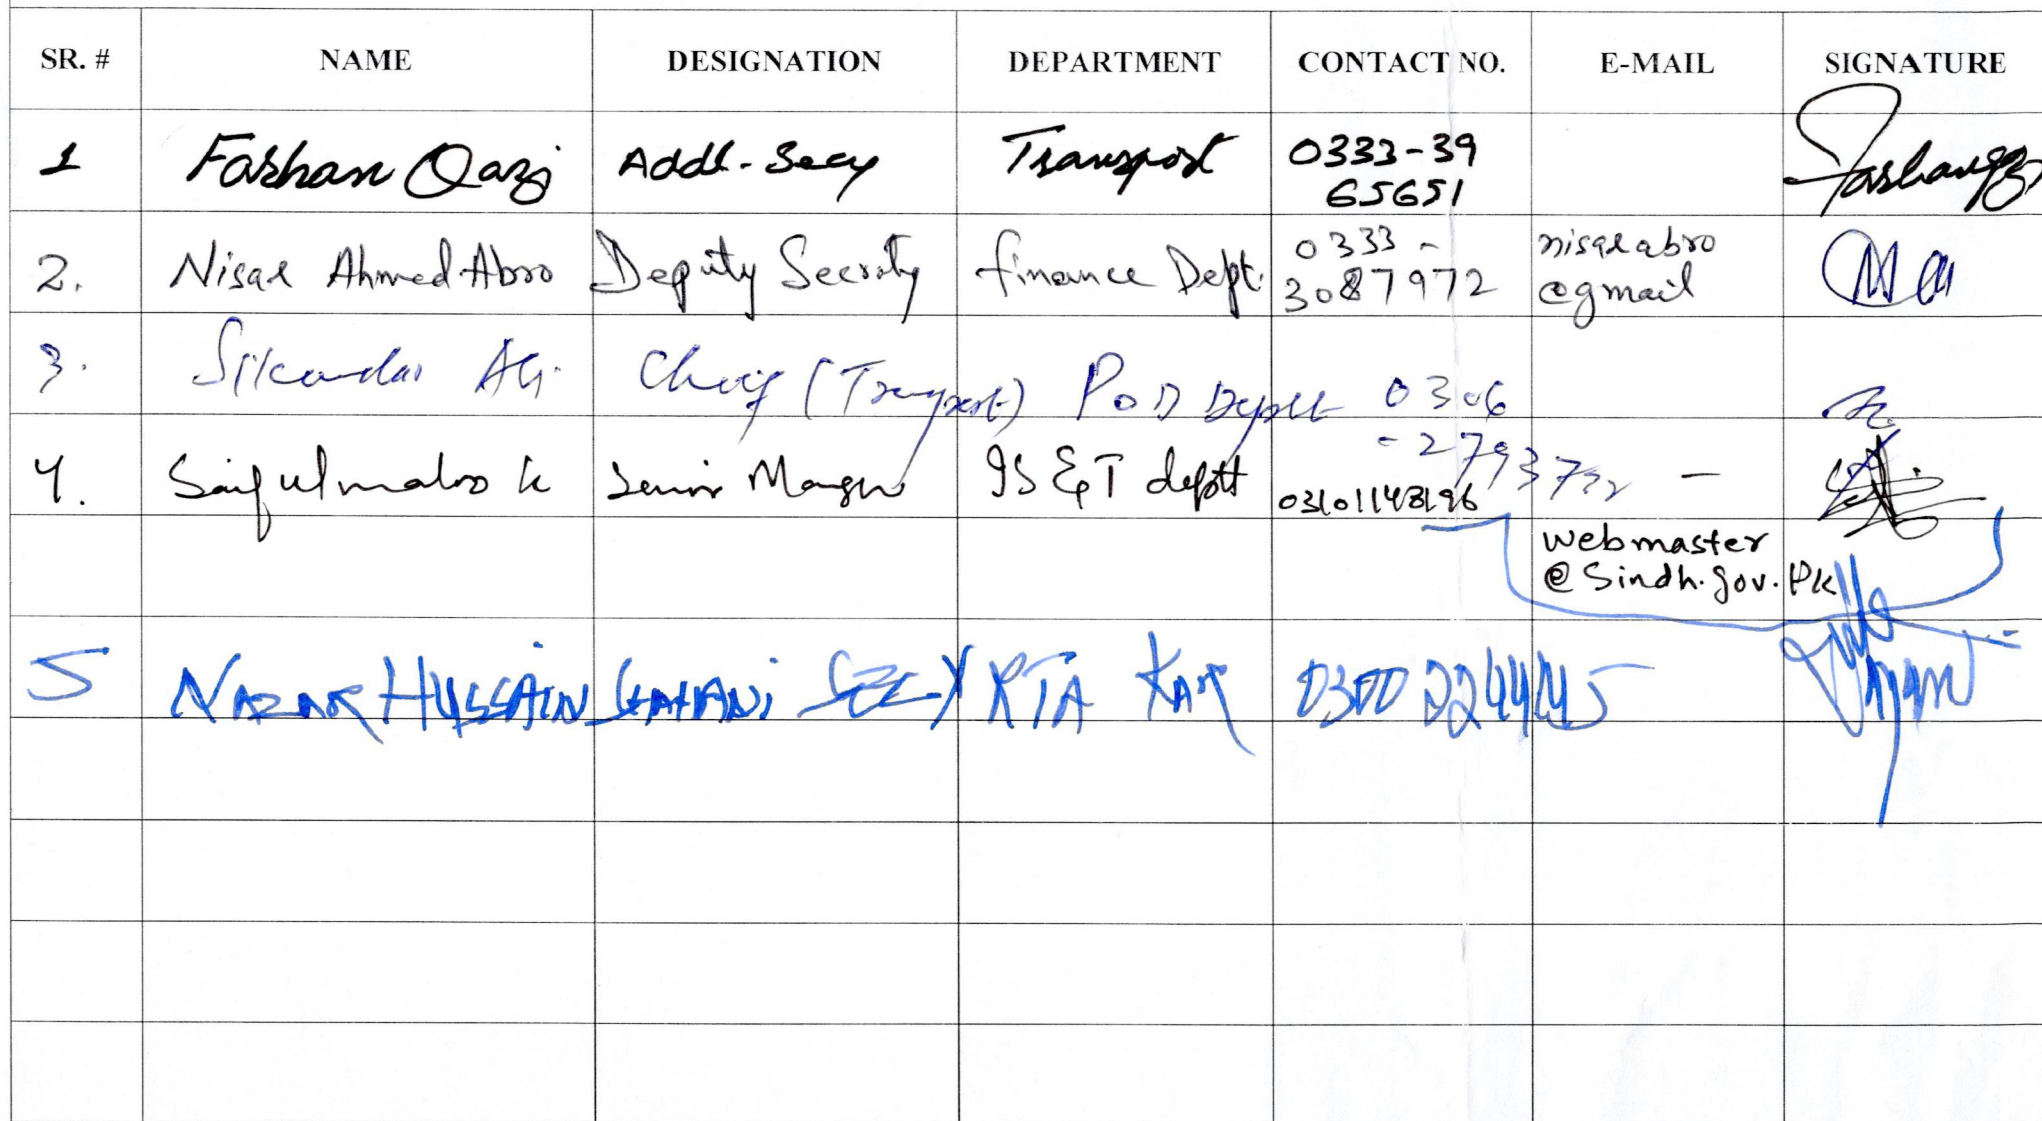 SR. # NAME DESIGNATION DEPARTMENT CONTACT NO. E-MAIL SIGNATURE
1 Farhan Qazi Addl-Secy Transport 0333-39
65651
2. Nisar Ahmed Abro Deputy Secrety Finance Dept. 0333 -
3087972
nisarabro
@gmail
3. Sikandar Ali Chief (Transport) P&D Deptt 0306
-279373
4. Saifulmalook Senior Manger IS&T deptt 03101143196 -
webmaster
@Sindh.gov.Pk
5 NAZAR HUSSAIN SHAHANI SECY RTA KAR 0300 2244445